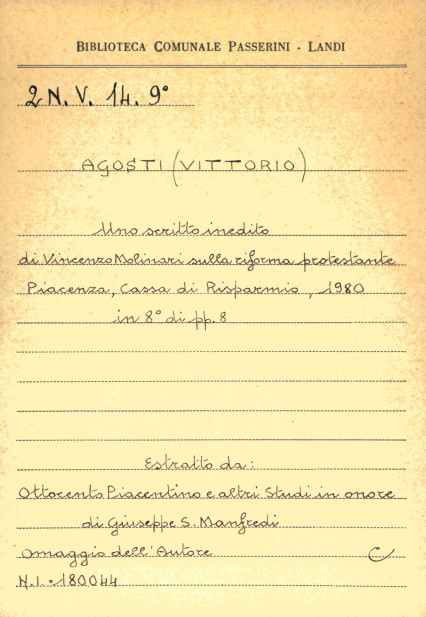 BIBLIOTECA COMUNALE PASSERINI - LANDI
2 N. V. 14. 9°
AGOSTI (VITTORIO)
Uno scritto inedito
di Vincenzo Molinari sulla riforma protestante
Piacenza, Cassa di Risparmio, 1980
in 8° di pp. 8
Estratto da:
Ottocento Piacentino e altri Studi in onore
di Giuseppe S. Manfredi
Omaggio dell'Autore C
N.I.=180044